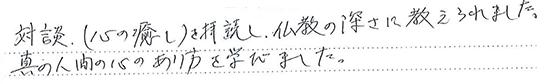 対談.(心の癒し)を拝読し、仏教の深さに教えられました。
真の人間の心のあり方を学びました。